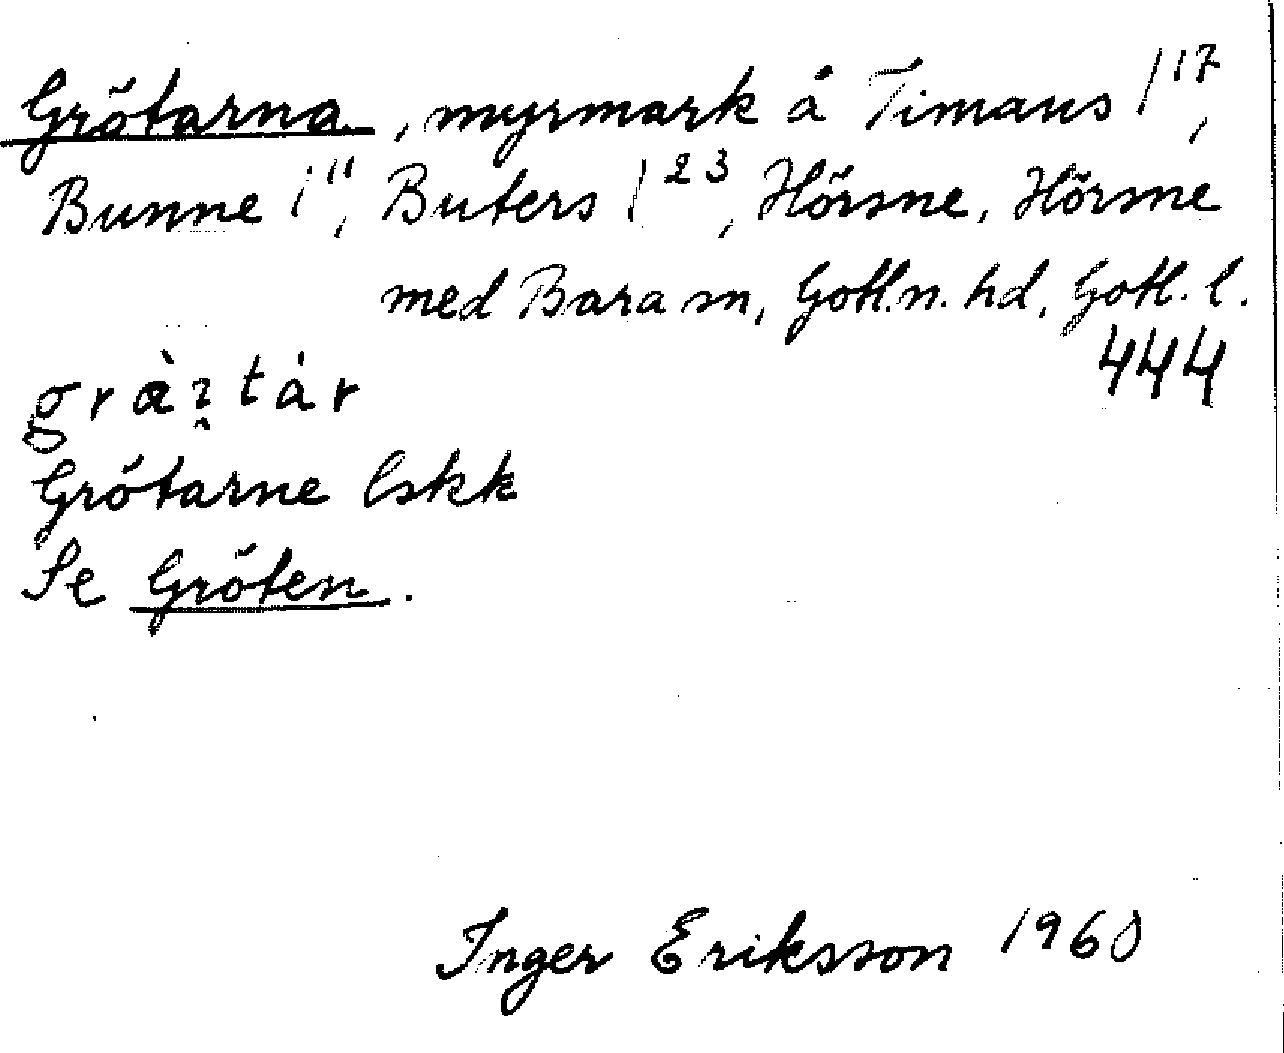 Grötarna, myrmark å Timans 1¹⁷,
Bunne 1¹¹, Buters 1²³, Hörsne, Hörsne
med Bara sn, Gotl.n. hd, Gotl. l.
444
Grötarne lskk
Se Gröten.
Inger Eriksson 1960